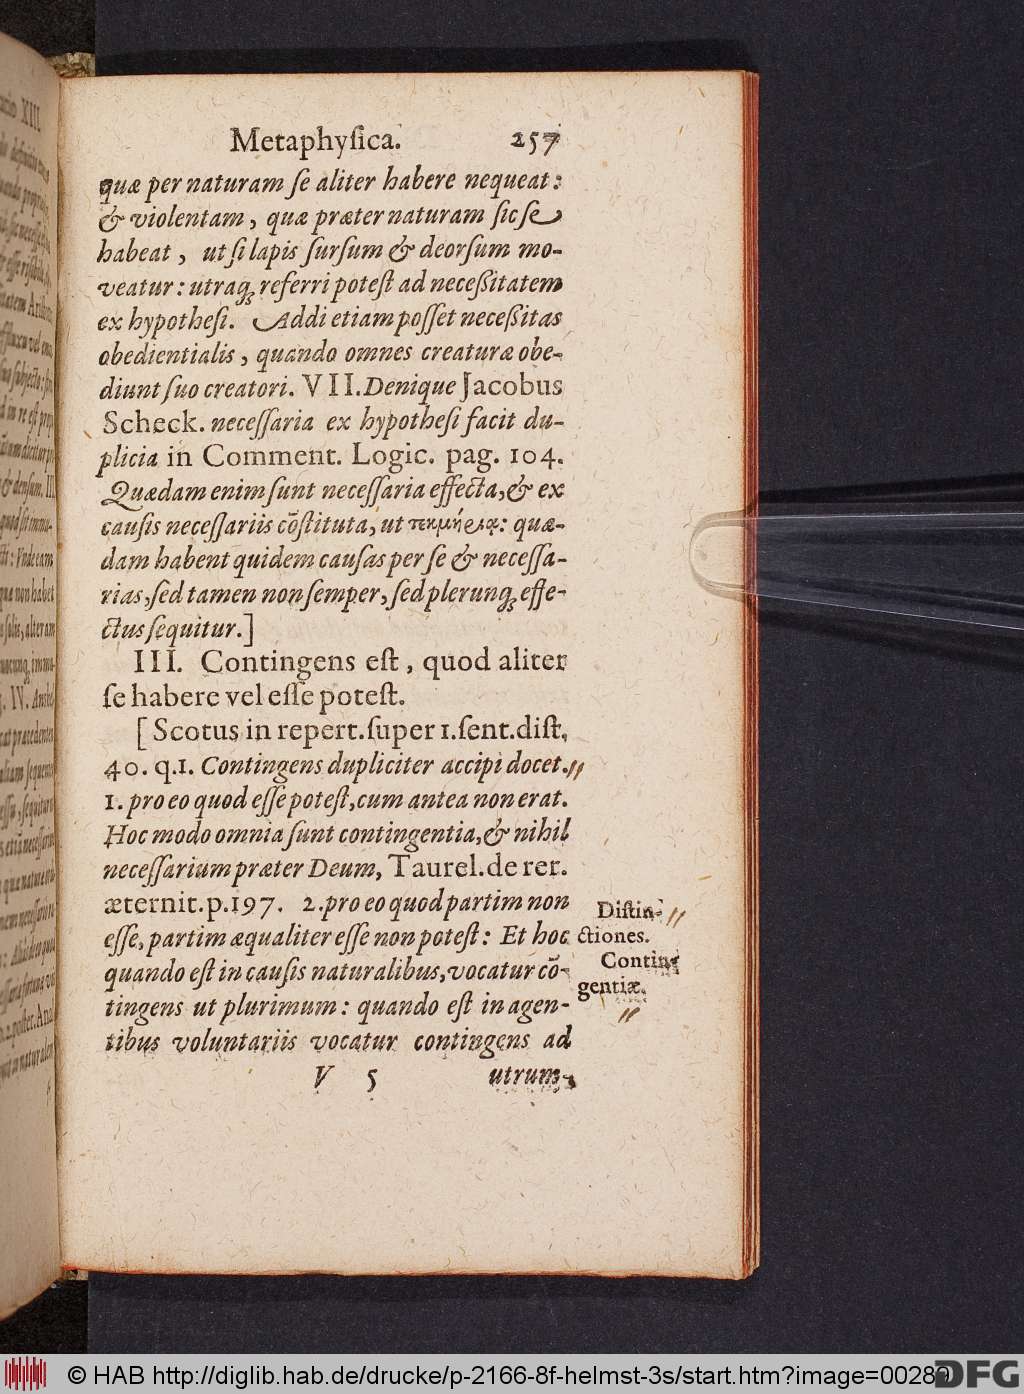 Metaphyſica. 257
quæ per naturam ſe aliter habere nequeat:
& violentam, quæ præter naturam ſic ſe
habeat, ut ſi lapis ſurſum & deorſum mo-
veatur: utraq; referri poteſt ad neceßitatem
ex hypotheſi. Addi etiam poſſet neceßitas
obedientialis, quando omnes creaturæ obe-
diunt ſuo creatori. VII. Denique Jacobus
Scheck. neceſſaria ex hypotheſi facit du-
plicia in Comment. Logic. pag. 104.
Quædam enim ſunt neceſſaria effecta, & ex
cauſis neceſſariis cōſtituta, ut : quæ-
dam habent quidem cauſas per ſe & neceſſa-
rias, ſed tamen non ſemper, ſed plerunq; effe-
ctus ſequitur.]
III. Contingens eſt, quod aliter
ſe habere vel eſſe poteſt.
[Scotus in repert. ſuper 1. ſent. diſt.
40. q.1. Contingens dupliciter accipi docet.
1. pro eo quod eſſe poteſt, cum antea non erat.
Hoc modo omnia ſunt contingentia, & nihil
neceſſarium præter Deum, Taurel. de rer.
æternit. p. 197. 2. pro eo quod partim non
eſſe, partim æqualiter eſſe non poteſt: Et hoc
quando eſt in cauſis naturalibus, vocatur cō-
tingens ut plurimum: quando eſt in agen-
tibus voluntariis vocatur contingens ad
V 5 utrum-
Diſtin-
ctiones.
Contin
gentiæ.
© HAB http://diglib.hab.de/drucke/p-2166-8f-helmst-3s/start.htm?image=00289
DFG